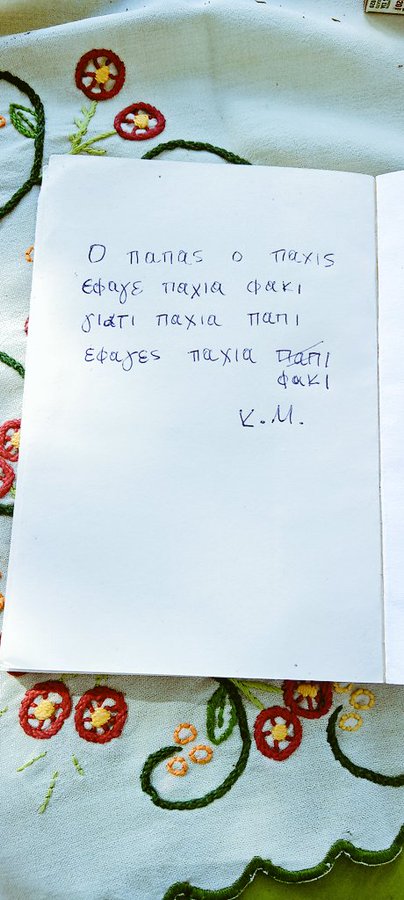 Ο παπας ο παχις
εφαγε παχια φακι
γιατι παχια παπι
εφαγες παχια παπι
φακι
Κ.Μ.